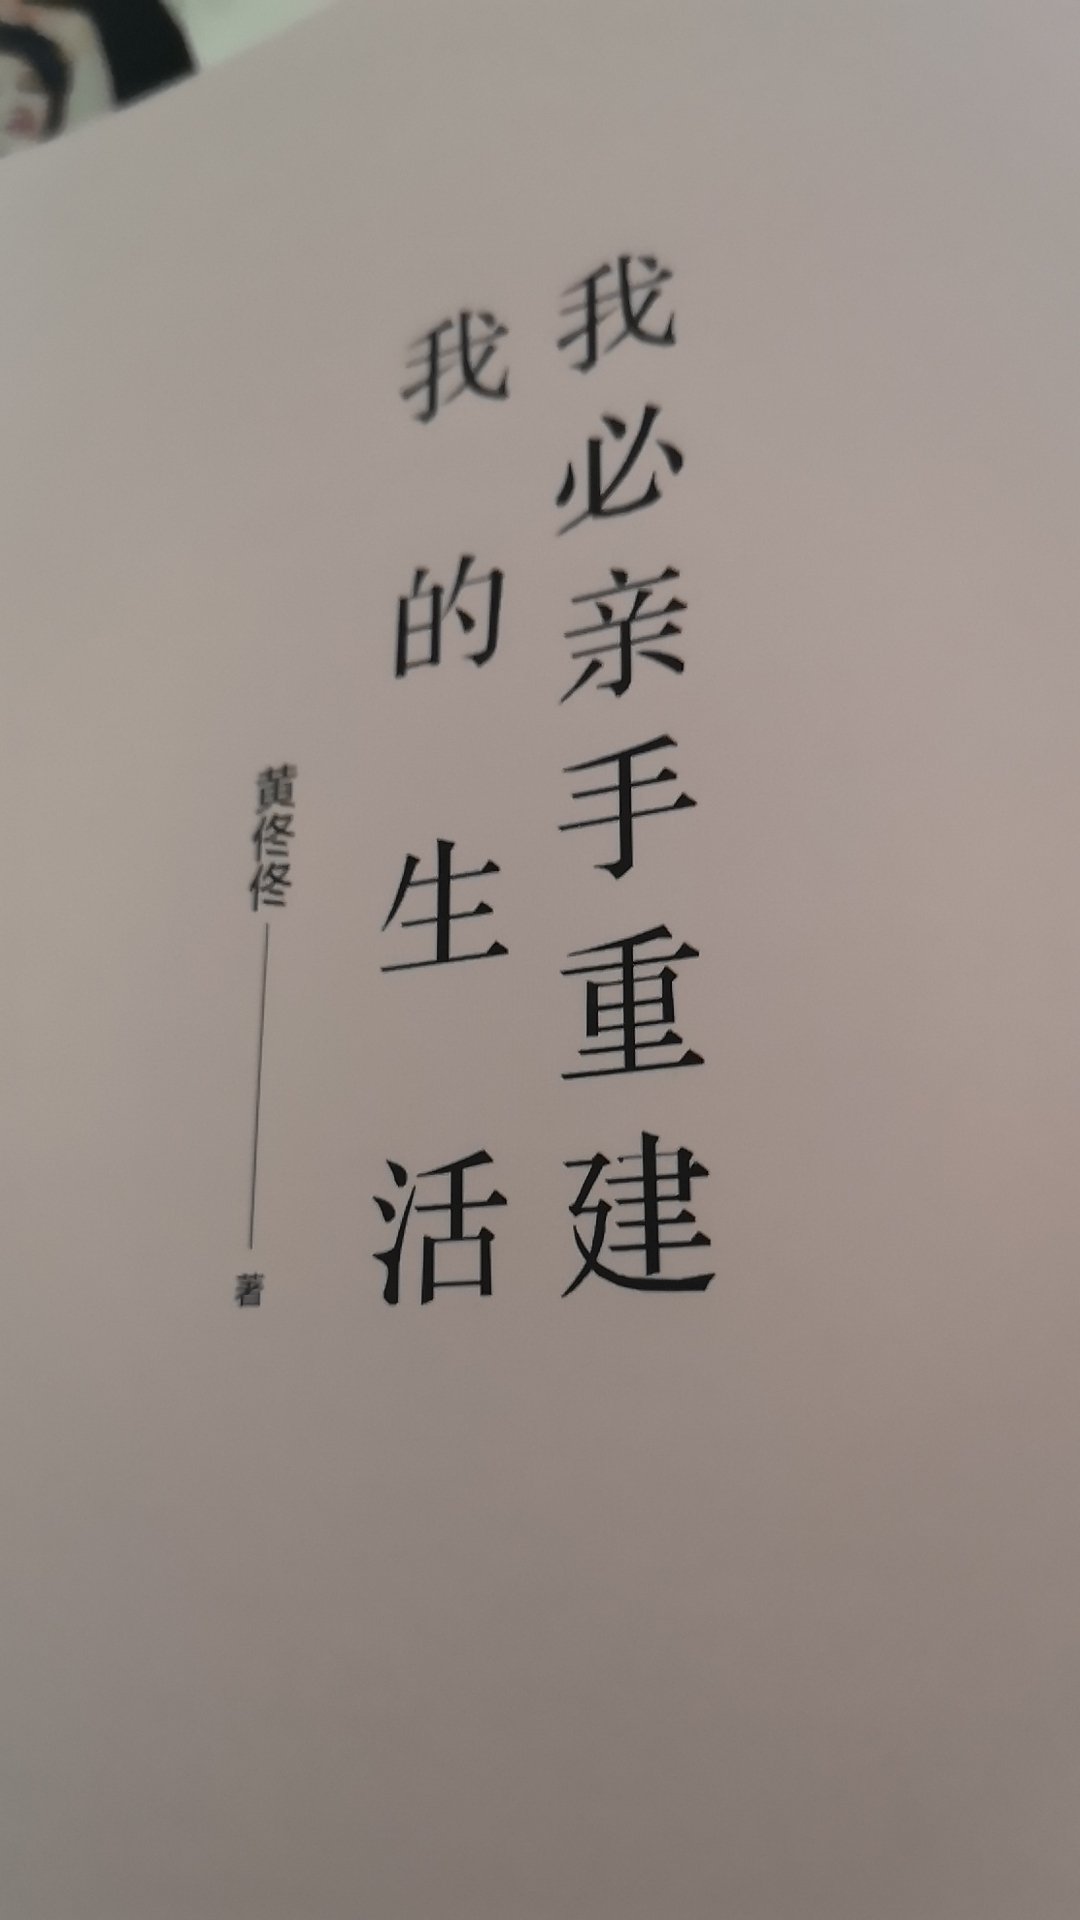 我必亲手重建
我的生活
黄佟佟——著